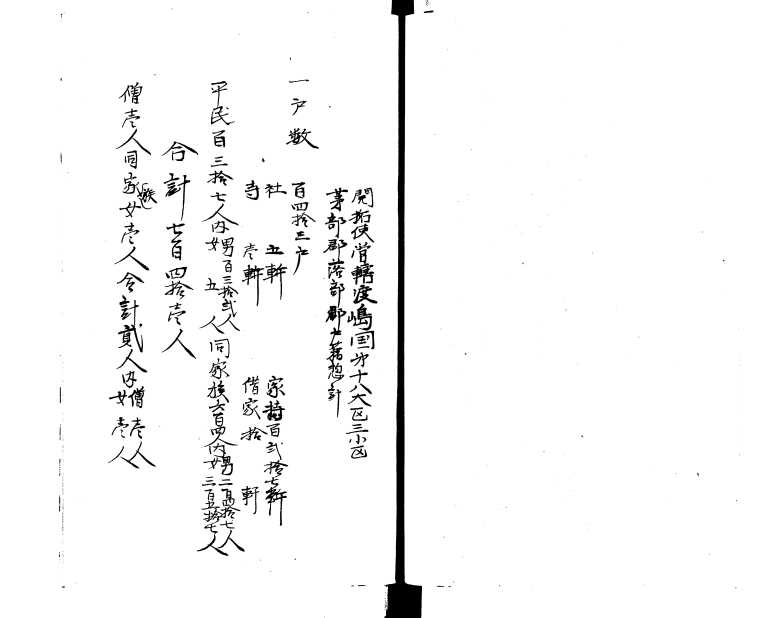 開拓使管轄渡嶋国第十八大区三小区
茅部郡落部郡戸籍惣計
一戸数
百四拾三戸
社 五軒
寺 壱軒
家持百弐拾七軒
借家拾 軒
平民百三拾七人内男百三拾弐人女五人同家族六百四人内男二百四拾七人女三百五拾七人
合計七百四拾壱人
僧壱人同家族女壱人合計貳人内僧壱人女壱人